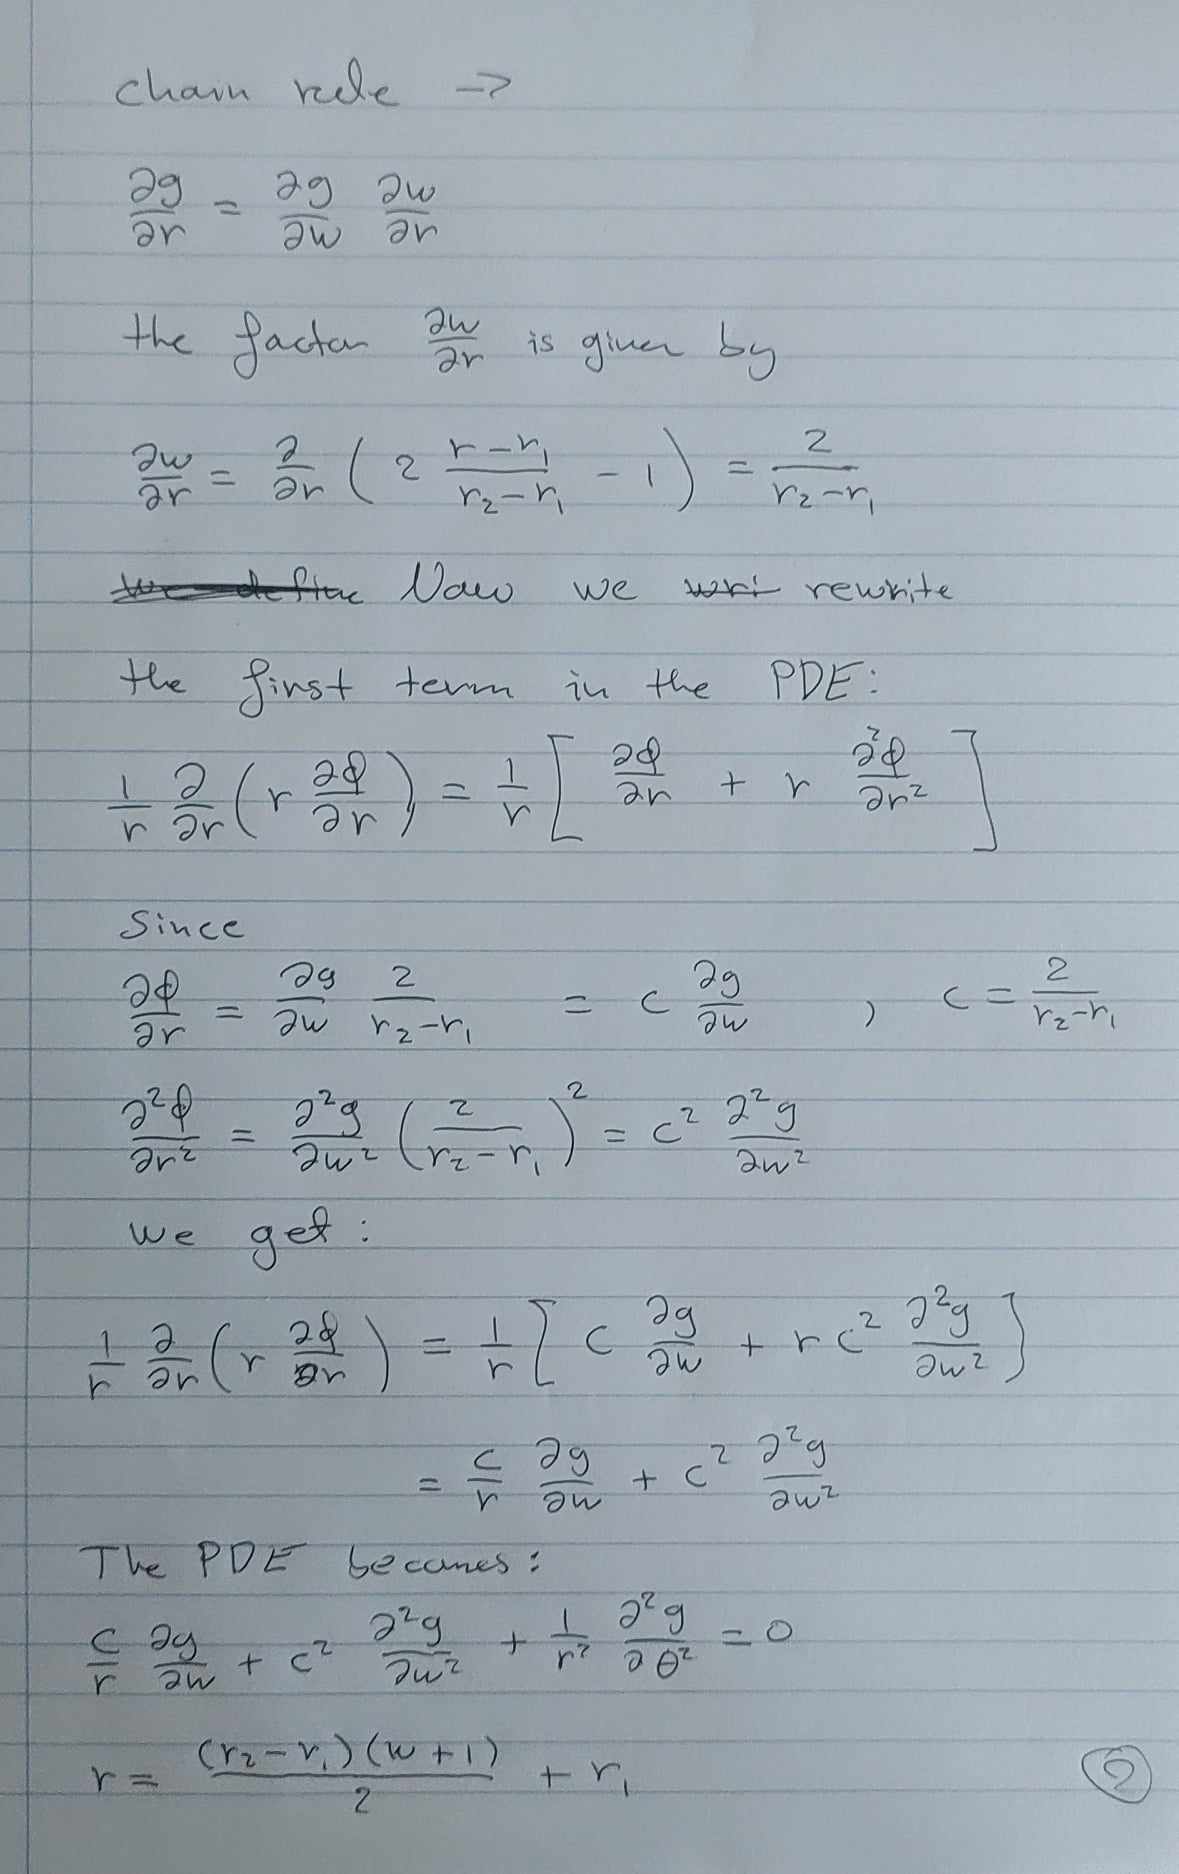 chain rule →
∂g/∂r = ∂g/∂w ∂w/∂r
the factor ∂w/∂r is given by
∂w/∂r = ∂/∂r ( 2 (r-r₁)/(r₂-r₁) - 1 ) = 2/(r₂-r₁)
We define Now we wri rewrite
the first term in the PDE:
1/r ∂/∂r ( r ∂φ/∂r ) = 1/r [ ∂φ/∂r + r ∂²φ/∂r² ]
Since
∂φ/∂r = ∂g/∂w 2/(r₂-r₁) = c ∂g/∂w , c = 2/(r₂-r₁)
∂²φ/∂r² = ∂²g/∂w² ( 2/(r₂-r₁) )² = c² ∂²g/∂w²
we get:
1/r ∂/∂r ( r ∂φ/∂r ) = 1/r [ c ∂g/∂w + r c² ∂²g/∂w² ]
= c/r ∂g/∂w + c² ∂²g/∂w²
The PDE becomes:
c/r ∂g/∂w + c² ∂²g/∂w² + 1/r² ∂²g/∂θ² = 0
r = (r₂-r₁)(w+1)/2 + r₁
2